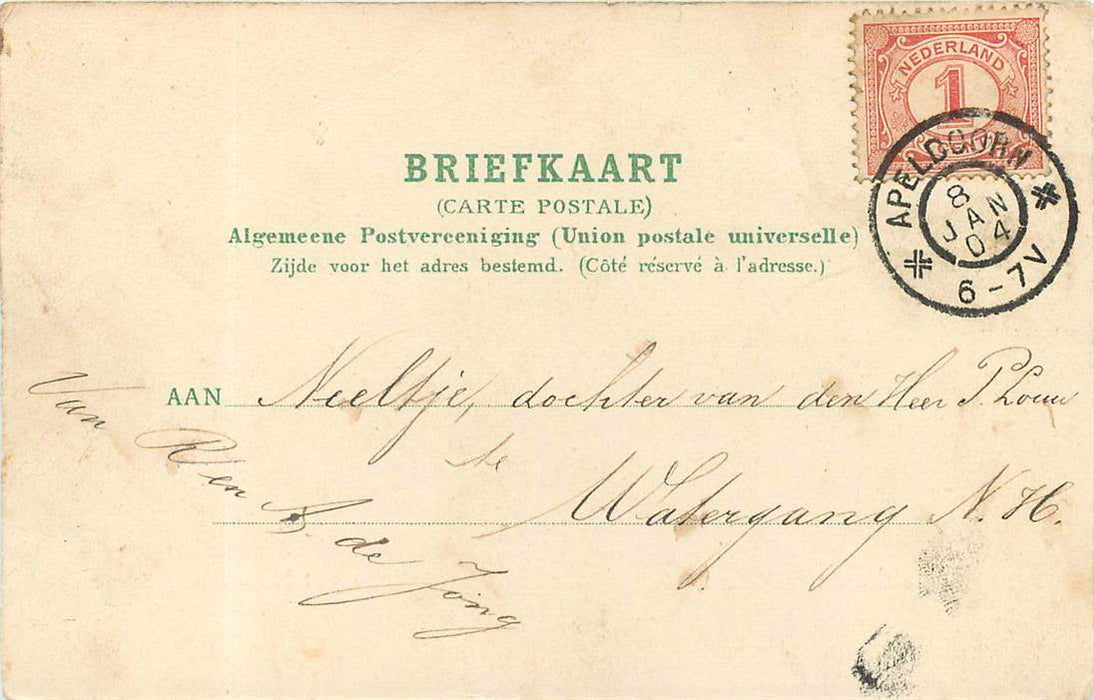 NEDERLAND
1
APELDOORN
8
JAN
04
6-7V
BRIEFKAART
(CARTE POSTALE)
Algemeene Postvereeniging (Union postale universelle)
Zijde voor het adres bestemd. (Côté réservé à l'adresse.)
AAN Neeltje, dochter van den Heer P. Louw
te Watergang N.H.
Van
R en A
de Jong